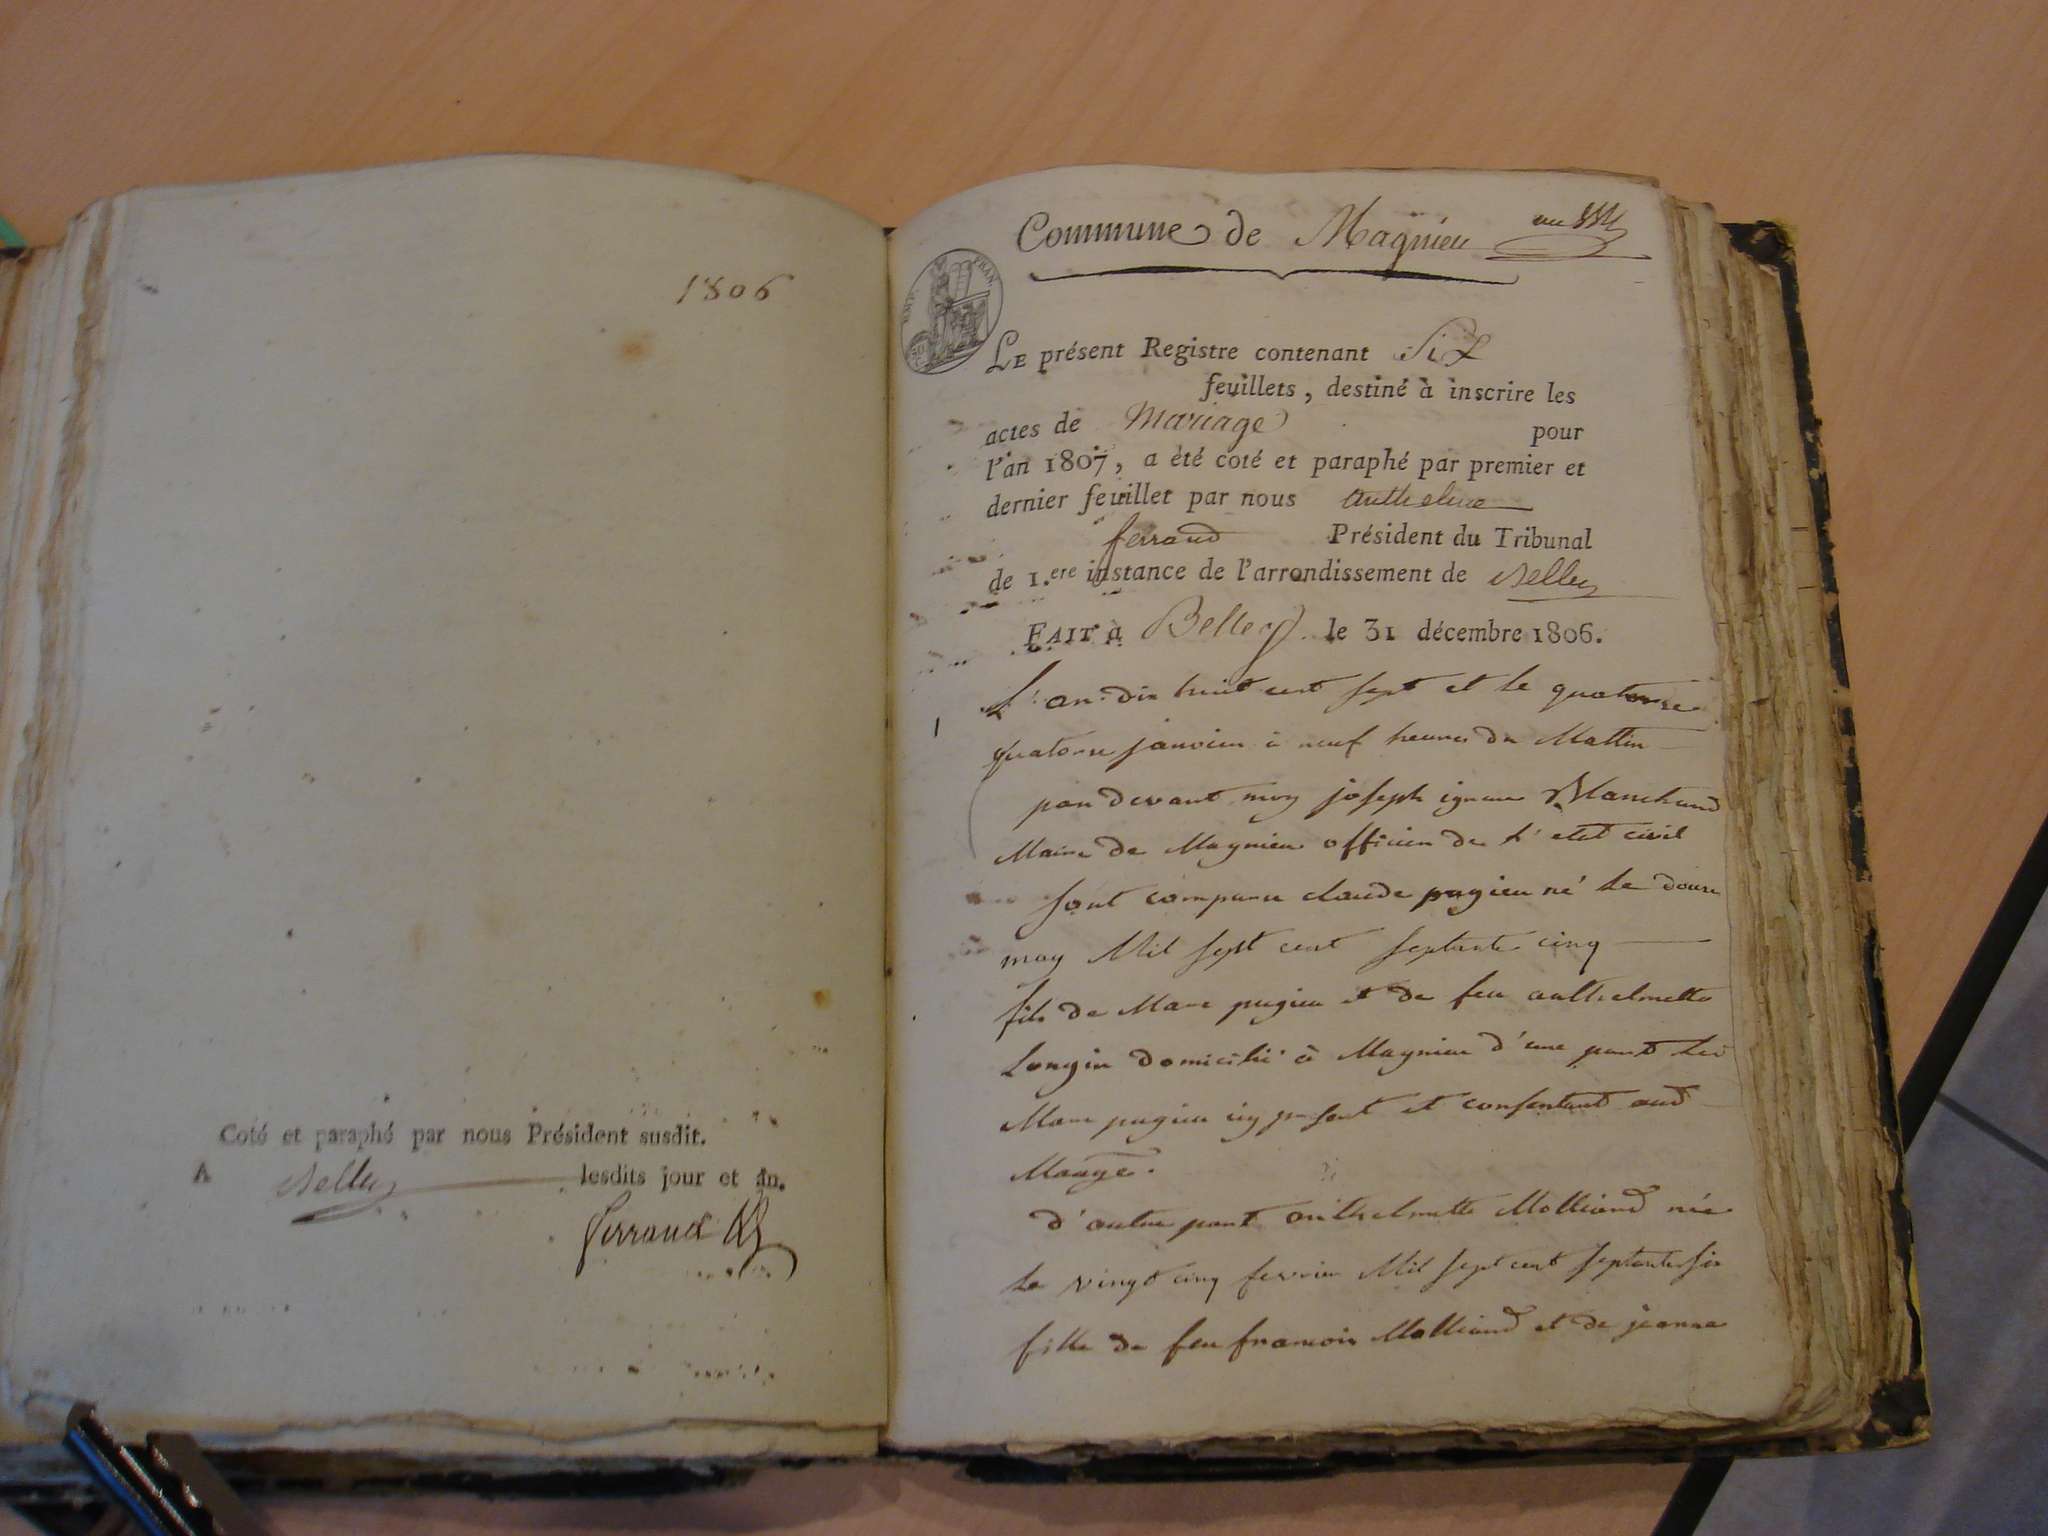 1806
Coté et paraphé par nous Président susdit.
A Belley lesdits jour et an.
Ferrand
Commune de Magnieu
EMP. FRAN.
LE présent Registre contenant Six
feuillets, destiné à inscrire les
actes de Mariage pour
l'an 1807, a été coté et paraphé par premier et
dernier feuillet par nous anthelme
ferrand Président du Tribunal
de 1.ere instance de l'arrondissement de Belley
FAIT à Belley le 31 décembre 1806.
1
L'an dix huit cent sept et le quatorse
quatorse janvier à neuf heures du Mattin
par devant moy joseph ignace Marchand
Maire de Magnieu officier de l'etat civil
sont comparu claude pugieu né le douse
may Mil sept cent septante cinq
fils de Marc pugieu et de feu anthelmette
Longin domicilié à Magnieu d'une part led
Marc pugieu icy present et consentant aud
Mariage.
d'autre part anthelmette Molliand née
le vingt cinq fevrier Mil sept cent septante six
fille de feu francois Molliand et de jeanne